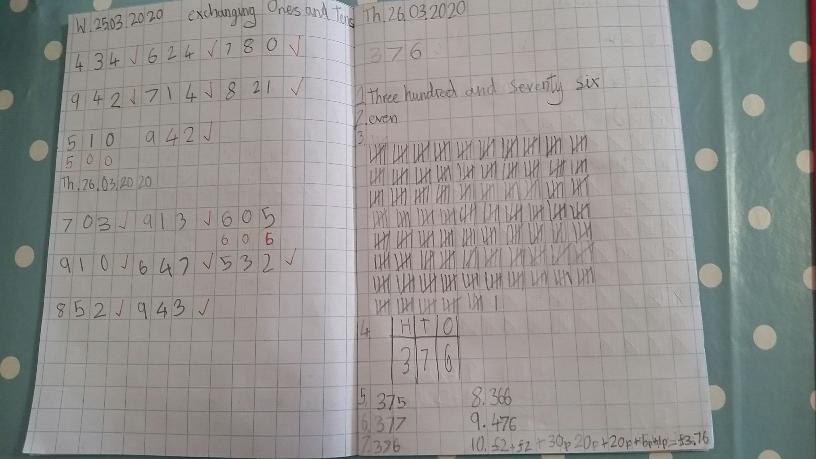 W. 25.03.2020 exchanging Ones and Tens
434 ✓ 624 ✓ 780 ✓
942 ✓ 714 ✓ 821 ✓
510 942 ✓
500
Th. 26.03.2020
703 ✓ 913 ✓ 605
606
910 ✓ 647 ✓ 532 ✓
852 ✓ 943 ✓
Th. 26.03.2020
376
1. Three hundred and seventy six
2. even
3.
4 H T O
3 7 6
5. 375
6. 377
7. 386
8. 366
9. 476
10. £2+£2 + 30p 20p + 20p + 5p+1p = £3.76